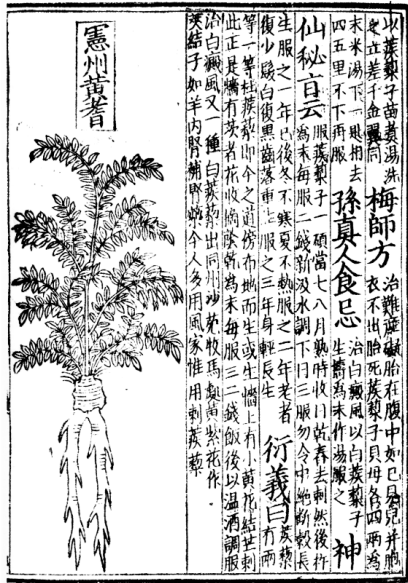 以蒺藜子苗煮湯洗
之立差千金翼同
梅師方
治難產礙胎在腹中如已見兒并胞
衣不出胎死蒺藜子貝母各四兩為
末米湯下一匙相去
四五里不下再服
孫真人食忌
治白癜風以白蒺藜子
生擣為末作湯服之
神
仙秘旨云
服蒺藜子一碩當七八月熟時收日乾舂去刺然後杵
為末每服二錢新汲水調下日三服勿令中絕斷穀長
生服之一年已後冬不寒夏不熱服之二年老者
復少髮白復黑齒落重生服之三年身輕長生
衍義曰
蒺藜
有兩
等一等杜蒺藜即今之道傍布地而生或生牆上有小黃花結芒刺
此正是牆有茨者花收摘蔭乾為末每服三二錢飯後以溫酒調服
治白癜風又一種白蒺藜出同州沙苑牧馬處紫花作
莢結子如羊內腎補腎藥今人多用風家惟用刺蒺藜
憲州黃耆